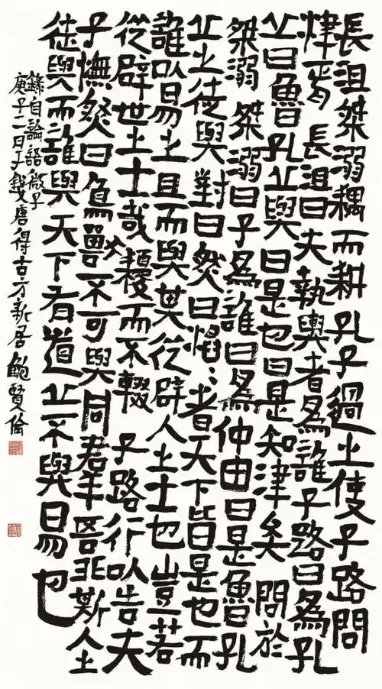 長沮桀溺耦而耕孔子過之使子路問
津焉長沮曰夫執輿者為誰子路曰為孔
丘曰魯孔丘與曰是也曰是知津矣問於
桀溺桀溺曰子為誰曰為仲由曰是魯孔
丘之徒與對曰然曰滔滔者天下皆是也而
誰以易之且而與其從辟人之士也豈若
從辟世之士哉耰而不輟子路行以告夫
子憮然曰鳥獸不可與同群吾非斯人之
徒與而誰與天下有道丘不與易也
錄自論語微子
庚子二月于錢唐得古方新居鮑賢倫